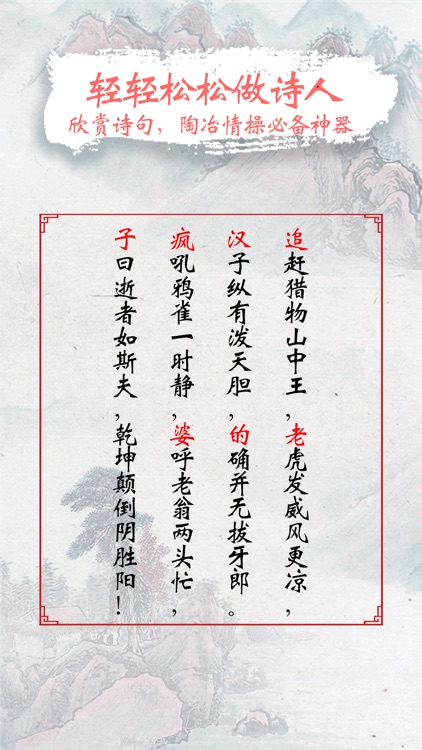 轻轻松松做诗人
欣赏诗句，陶冶情操必备神器
追赶猎物山中王，老虎发威风更凉，
汉子纵有泼天胆，的确并无拔牙郎。
疯吼鸦雀一时静，婆呼老翁两头忙，
子曰逝者如斯夫，乾坤颠倒阴胜阳！